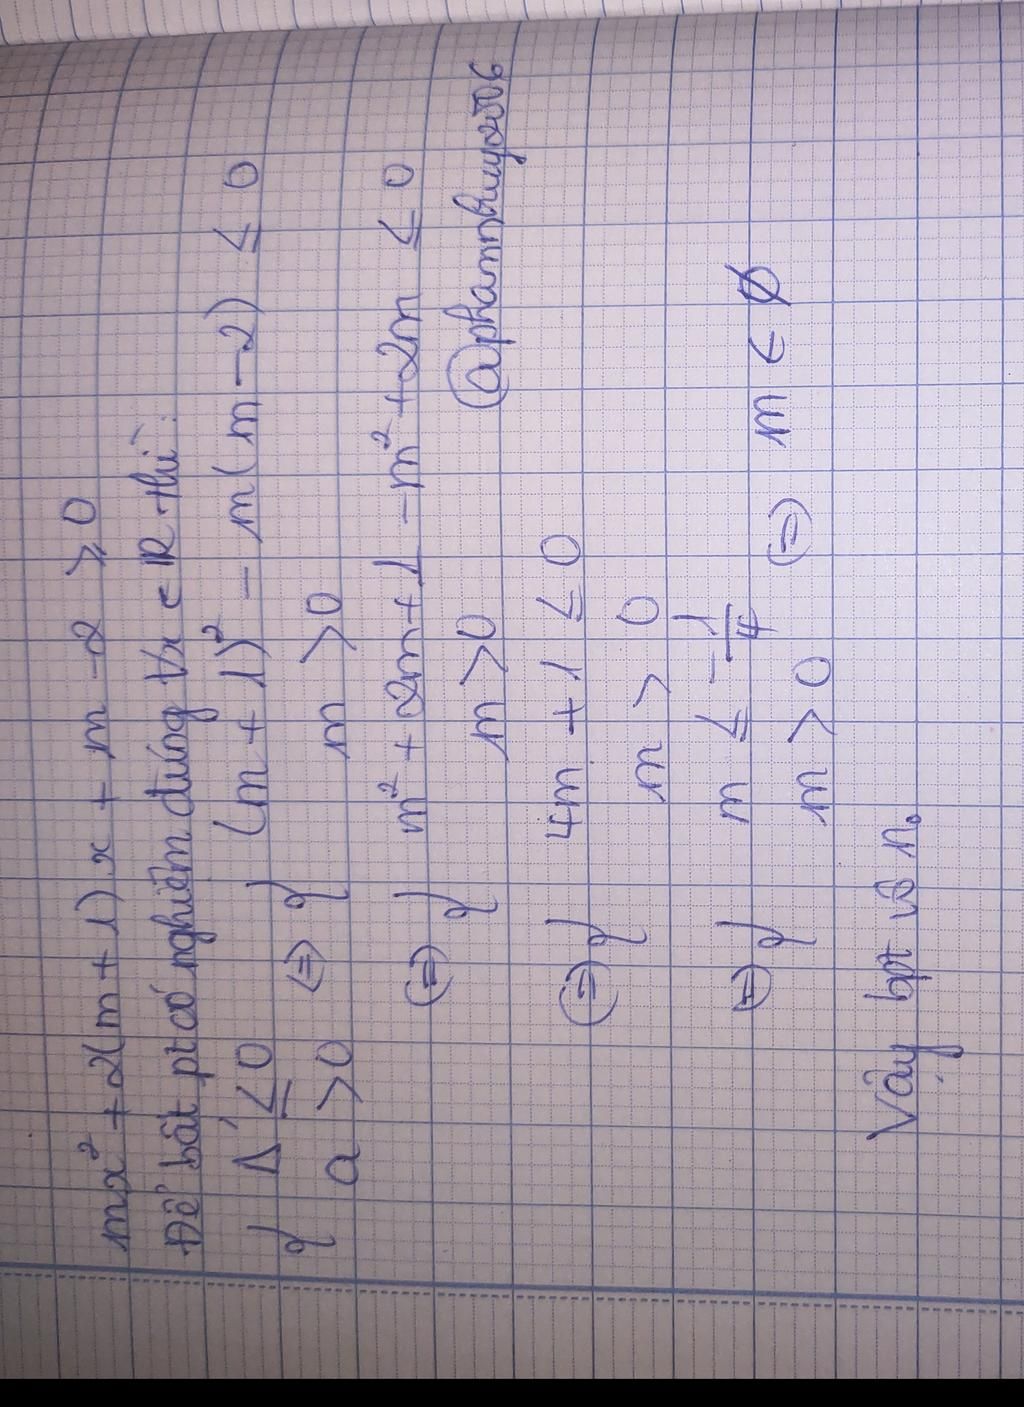 mx² + 2(m+1)x + m - 2 ⩾ 0
Để bất pt có nghiệm đúng ∀x ∈ ℝ thì:
{ Δ' ≤ 0 ⇔ { (m+1)² - m(m-2) ≤ 0
a > 0 m > 0
⇔ { m² + 2m + 1 - m² + 2m ≤ 0
m > 0 @phamnhuy2006
⇔ { 4m + 1 ≤ 0
m > 0
⇔ { m ≤ -1/4 ⇔ m ∈ ∅
m > 0
Vậy bpt vô n₀